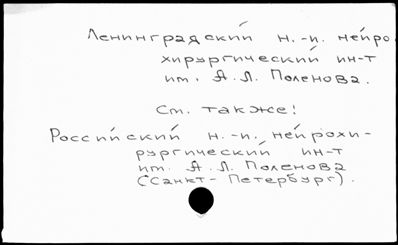 Ленинградский н.-и. нейро
хирургический ин-т
им. А.Л. Поленова.
См. также:
Российский н.-и. нейрохи-
рургический ин-т
им. А.Л. Поленова
(Санкт-Петербург).